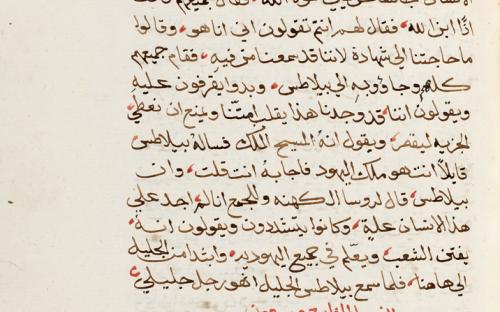 اذًا ابن الله، فقال لهم انتم تقولون اني انا هو، وقالوا
ما حاجتنا الي شهادة لاننا قد سمعنا من فيه، فقام جميعهم
كلهم وجاؤوا به الي بيلاطس، وبدوا يقرفون عليه
ويقولون اننا قد وجدنا هذا يقلب امتنا ويمنع ان نعطي
الجزيه لقيصر، ويقول انه المسيح الملك فساله بيلاطس
قايلًا انت هو ملك اليهود فاجابه انت قلت، وان
بيلاطس، قال لروسا الكهنه والجمع انا لم اجد علي
هذا الانسان علة، وكانوا يشتدون ويقولون انه
يفتن الشعب، ويعلم في جميع اليهوديه، وابتدا من الجليل
الي هاهنا، فلما سمع بيلاطس الجليل اهو رجل جليلي،